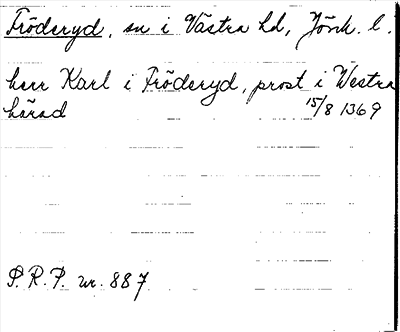 Fröderyd, sn i Västra hd, Jönk. l.
herr Karl i Fröderyd, prost i Westra
härad 15/8 1369
P. R. P. nr. 887